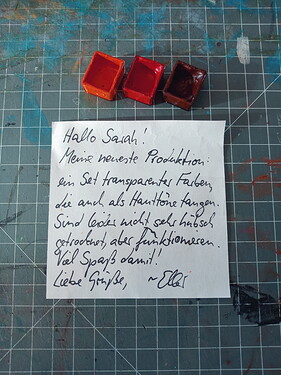 Hallo Sarah!
Meine neueste Produktion:
ein Set transparenter Farben,
die auch als Hauttöne taugen.
Sind leider nicht sehr hübsch
getrocknet, aber funktionieren.
Viel Spaß damit!
Liebe Grüße,